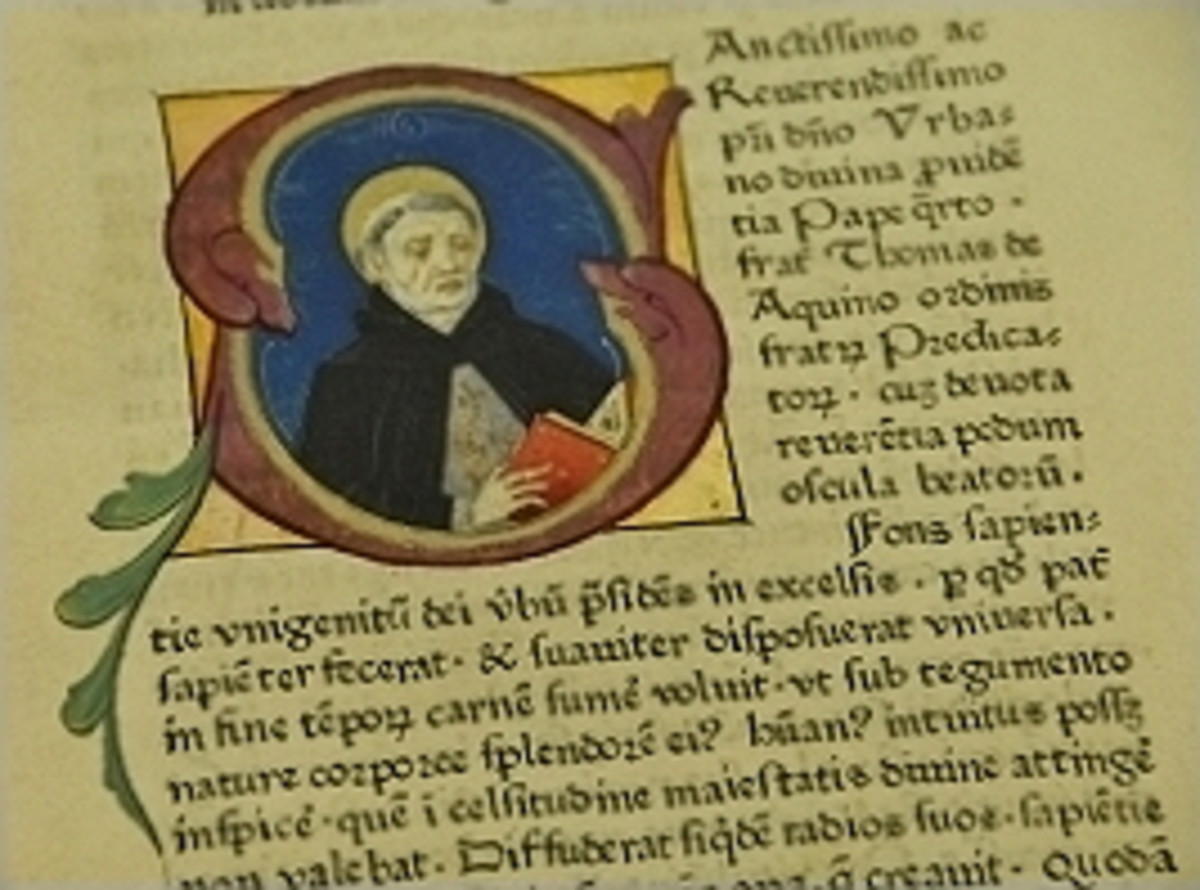 Anctissimo ac
Reuerendissimo
pr̄i dn̄o Vrba⸗
no diuina ꝓuidē
tia Pape q̄rto .
frat̄ Thomas de
Aquino ordinis
fratꝝ Predica⸗
toꝝ . cuꝫ deuota
reuerētia pedum
oscula beatorū .
ffons sapien⸗
tie vnigenitū dei v̄bū p̄sidēs in excelsis . ꝑ qd̄ pat̄
sapiēter fecerat . & suauiter disposuerat vniuersa .
in fine tēpoꝝ carnē sumē voluit . vt sub tegumento
nature corporee splendorē ei? hūan? intuitus possꝫ
inspicē . quē ī celsitudine maiestatis diuine attingē
non valebat . Diffuderat siq̄dē radios suos . sapiētie
q̄ creauit . Quodā